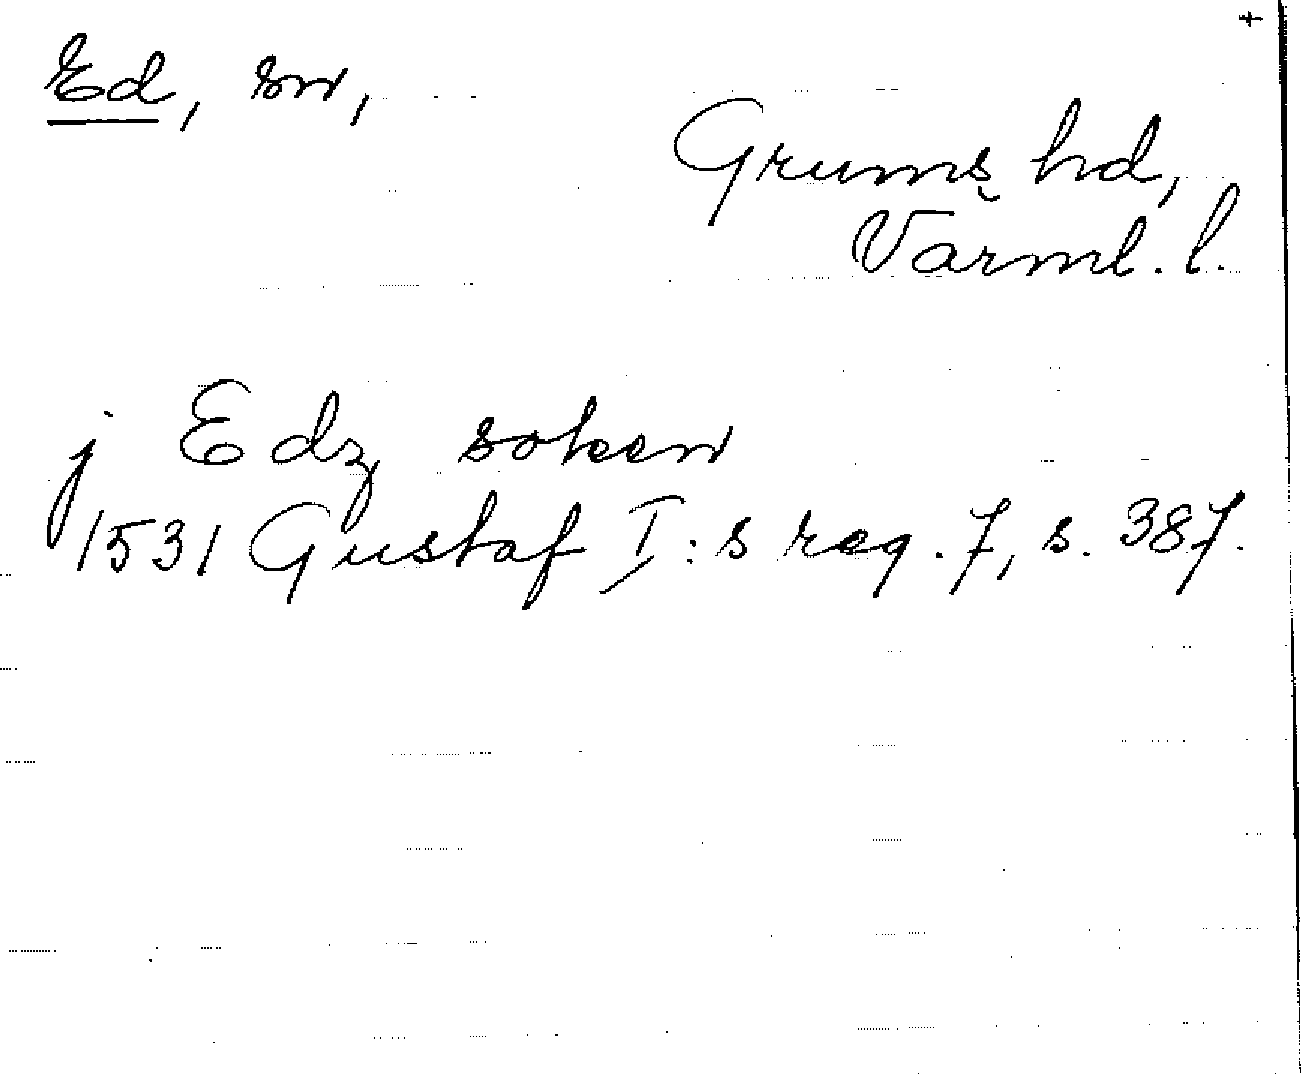 +
Ed, sn,
Grums hd,
Värml. l.
j Edz soken
1531 Gustaf I:s reg. 7, s. 387.